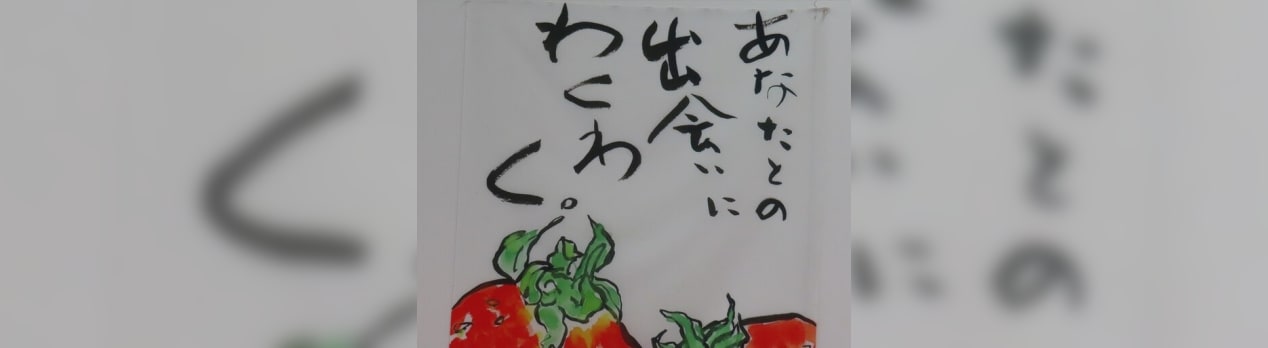 あなたとの
出会いに
わくわく。